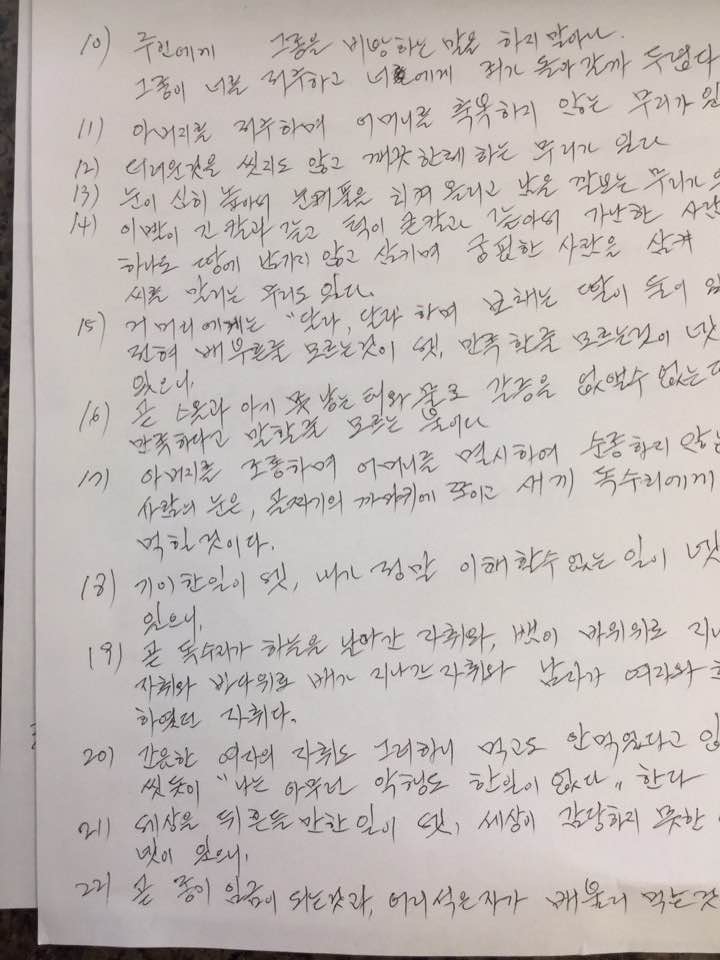 10) 주인에게 그종을 비방하는 말을 하지 말아라.
그종이 너를 저주하고 너에게 죄가 돌아 갈까 두렵다
11) 아버지를 저주하며 어머니를 축복하지 않는 무리가 있
12) 더러운것을 씻지도 않고 깨끗한체 하는 무리가 있다
13) 눈이 심히 높아서 눈꺼풀을 치켜 올리고 남을 깔보는 무리가
14) 이빨이 긴 칼과 같고 턱이 큰칼과 같아서 가난한 사람
하나도 땅에 남기지 않고 삼키며 궁핍한 사람을 삼켜
씨를 말리는 무리도 있다.
15) 거머리에게는 "달라, 달라 하며 보채는 딸이 둘이 있
전혀 배부른줄 모르는것이 셋, 만족할줄 모르는것이 넷
있으니,
16) 곧 스올과 아기 못 낳는 태와 물로 갈증을 없앨수 없는 땅
만족하다고 말할줄 모르는 불이다
17) 아버지를 조롱하며 어머니를 멸시하여 순종하지 않는
사람의 눈은, 골짜기의 까마귀에 쪼이고 새끼 독수리에게
먹힐것이다.
18) 기이한일이 셋, 내가 정말 이해할수 없는 일이 넷
있으니,
19) 곧 독수리가 하늘을 날아간 자취와, 뱀이 바위위로 지나
자취와 바다위로 배가 지나간 자취와 남자가 여자와
하였던 자취다.
20) 간음한 여자의 자취도 그러하니 먹고도 안먹었다고 입
씻듯이 "나는 아무런 악행도 한일이 없다" 한다
21) 세상을 뒤흔들 만한 일이 셋, 세상이 감당하지 못한
넷이 있으니,
22) 곧 종이 임금이 되는것과, 어리석은자가 배불리 먹는것